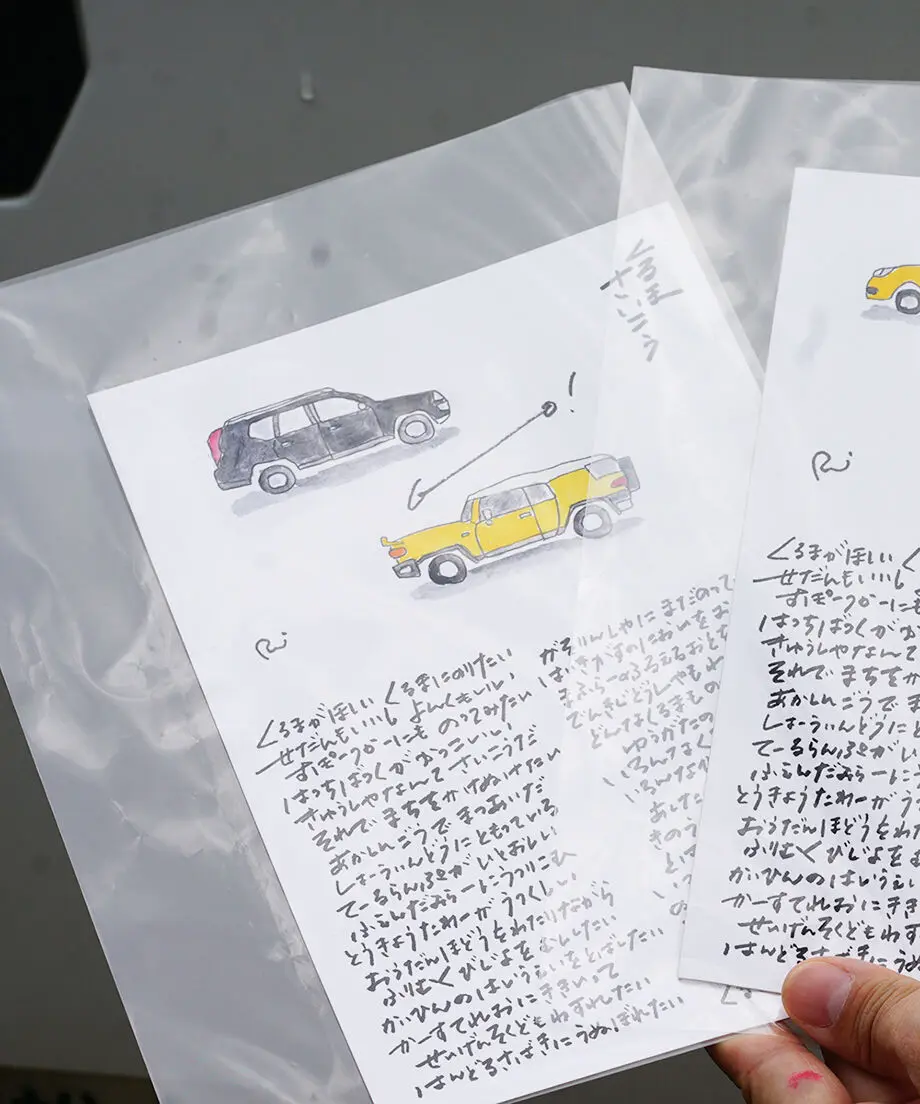 くるま
さいこう
!
Rui
くるまがほしい くるまにのりたい
せだんもいいし よんくもいい
すぽーつかーにも のってみたい
はっちばっくが かっこいい
きゅうしゃなんて さいこうだ
それで まちをかけぬけたい
あかしんごうで まつあいだ
しょーうぃんどうに ともっている
てーるらんぷが いとおしい
ふぇんだみらーに うつりこむ
とうきょうたわーが うつくしい
おうだんほどうを わたりながら
ふりむくびじょを むししたい
かいひんの はいうぇいを とばしたい
かーすてれおに ききいって
せいげんそくども わすれたい
はんどるさばきに うぬぼれたい
がそりんしゃに まだのって
はいきがすの においを お
まふらーの ふるえるおと
でんきじどうしゃも わ
どんなくるまもの
ゆうがたの
いろんな
いろんな
あした
きのう
とて
いつ
の
Rui
くるまがほしい く
せだんもいいし
すぽーつかーにも
はっちばっくが か
きゅうしゃなんて
それで まちをか
あかしんごうで ま
しょーうぃんどうに と
てーるらんぷが い
ふぇんだみらーに
とうきょうたわーが う
おうだんほどうを わ
ふりむくびじょを む
かいひんの はいうぇい
かーすてれおに きき
せいげんそくども わす
はんどるさばきに うぬ